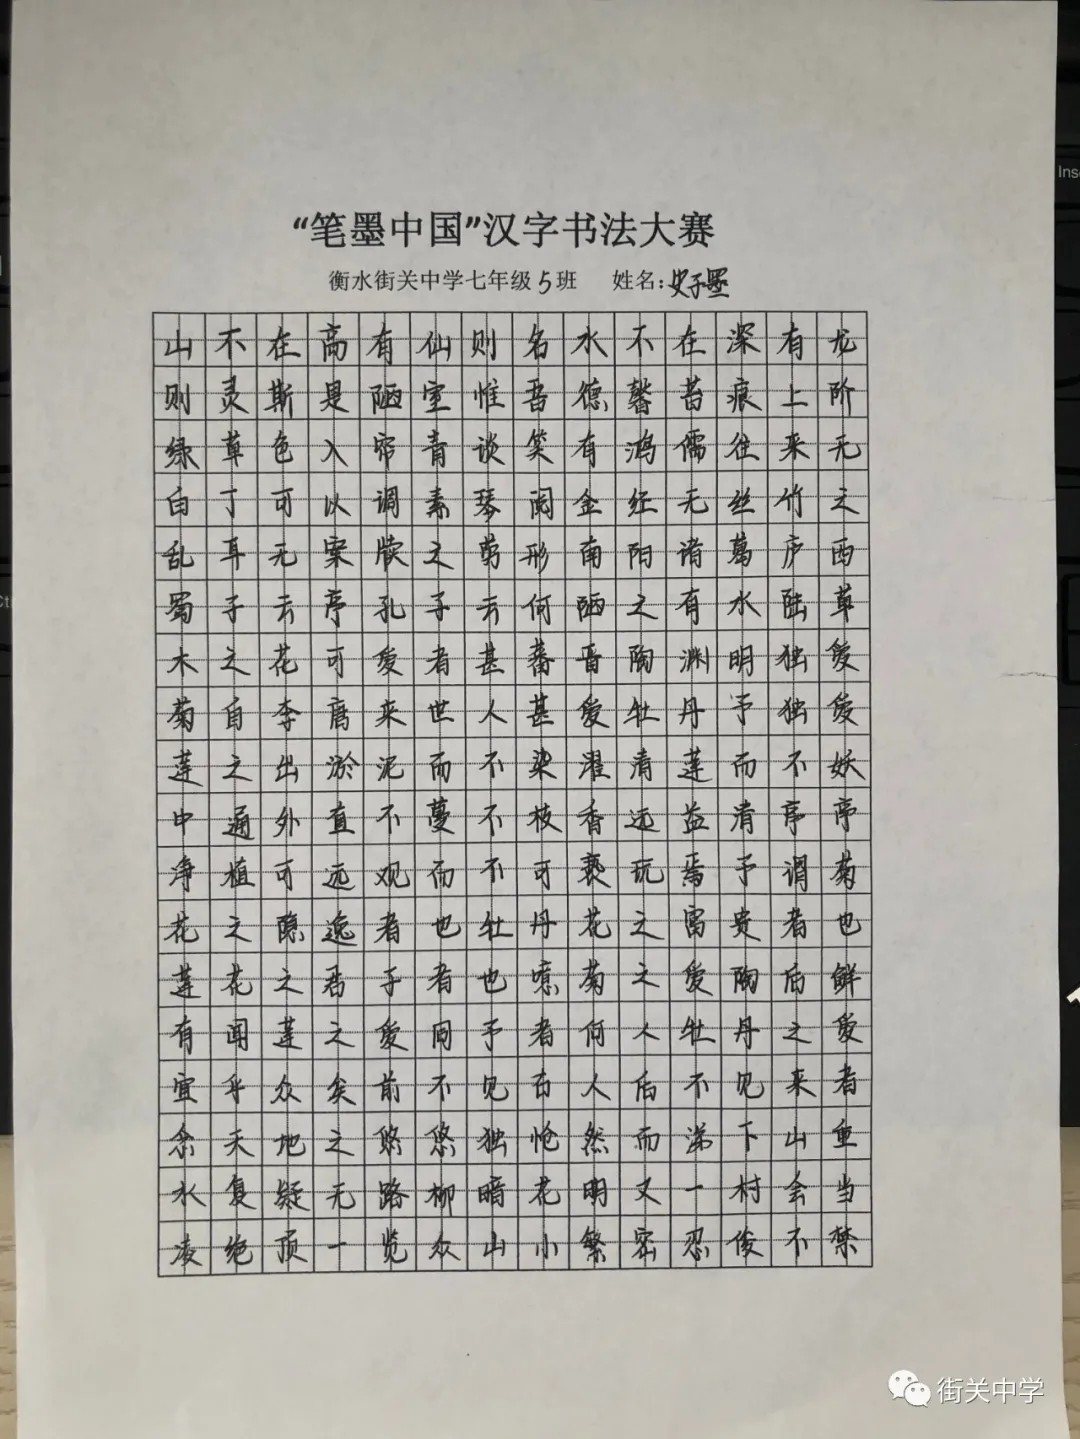 “笔墨中国”汉字书法大赛
衡水街关中学七年级5班 姓名:史子墨
山不在高有仙则名水不在深有龙
则灵斯是陋室惟吾德馨苔痕上阶
绿草色入帘青谈笑有鸿儒往来无
白丁可以调素琴阅金经无丝竹之
乱耳无案牍之劳形南阳诸葛庐西
蜀子云亭孔子云何陋之有水陆草
木之花可爱者甚蕃晋陶渊明独爱
菊自李唐来世人甚爱牡丹予独爱
莲之出淤泥而不染濯清莲而不妖
中通外直不蔓不枝香远益清亭亭
净植可远观而不可亵玩焉予谓菊
花之隐逸者也牡丹花之富贵者也
莲花之君子者也噫菊之爱陶后鲜
有闻莲之爱同予者何人牡丹之爱
宜乎众矣前不见古人后不见来者
念天地之悠悠独怆然而涕下山重
水复疑无路柳暗花明又一村会当
凌绝顶一览众山小繁密忍俊不禁
Inse
街关中学